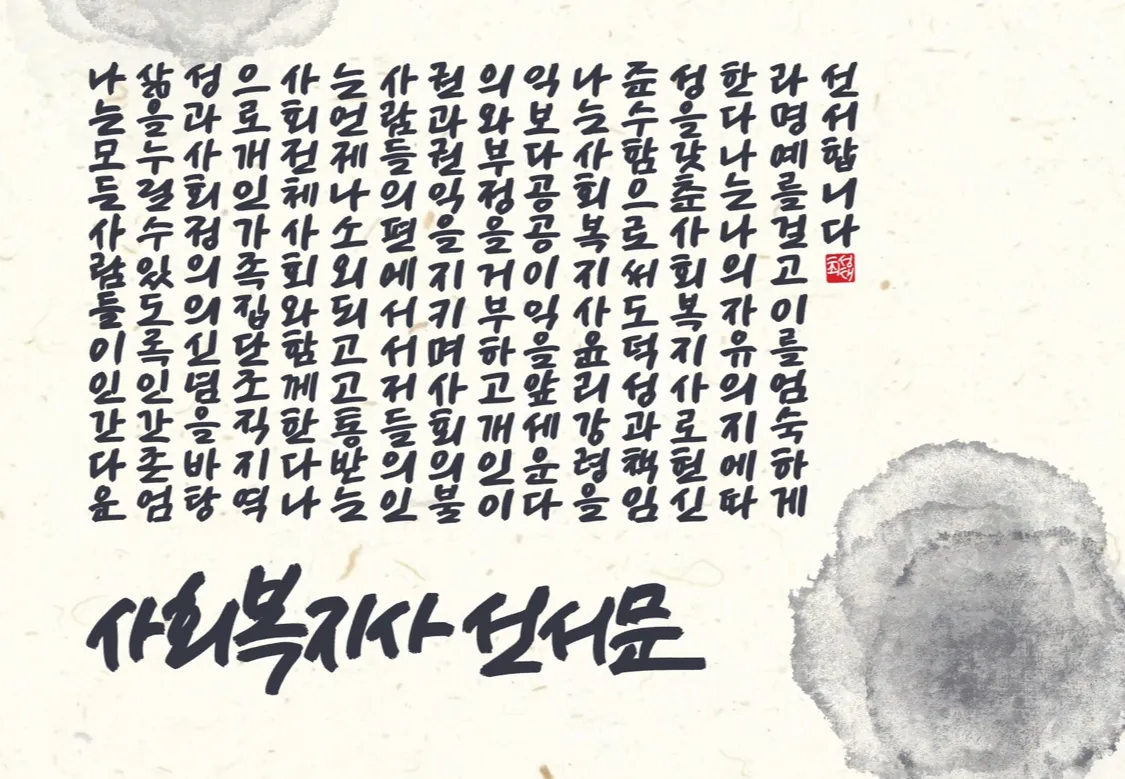 나는모든사람들이인간다운
삶을누릴수있도록인간존엄
성과사회정의의신념을바탕
으로개인가족집단조직지역
사회전체사회와함께한다나
는언제나소외되고고통받는
사람들의편에서서저들의인
권과권익을지키며사회의불
의와부정을거부하고개인이
익보다공공이익을앞세운다
나는사회복지사윤리강령을
준수함으로써도덕성과책임
성을갖춘사회복지사로헌신
한다나는나의자유의지에따
라명예를걸고이를엄숙하게
선서합니다
사회복지사 선서문